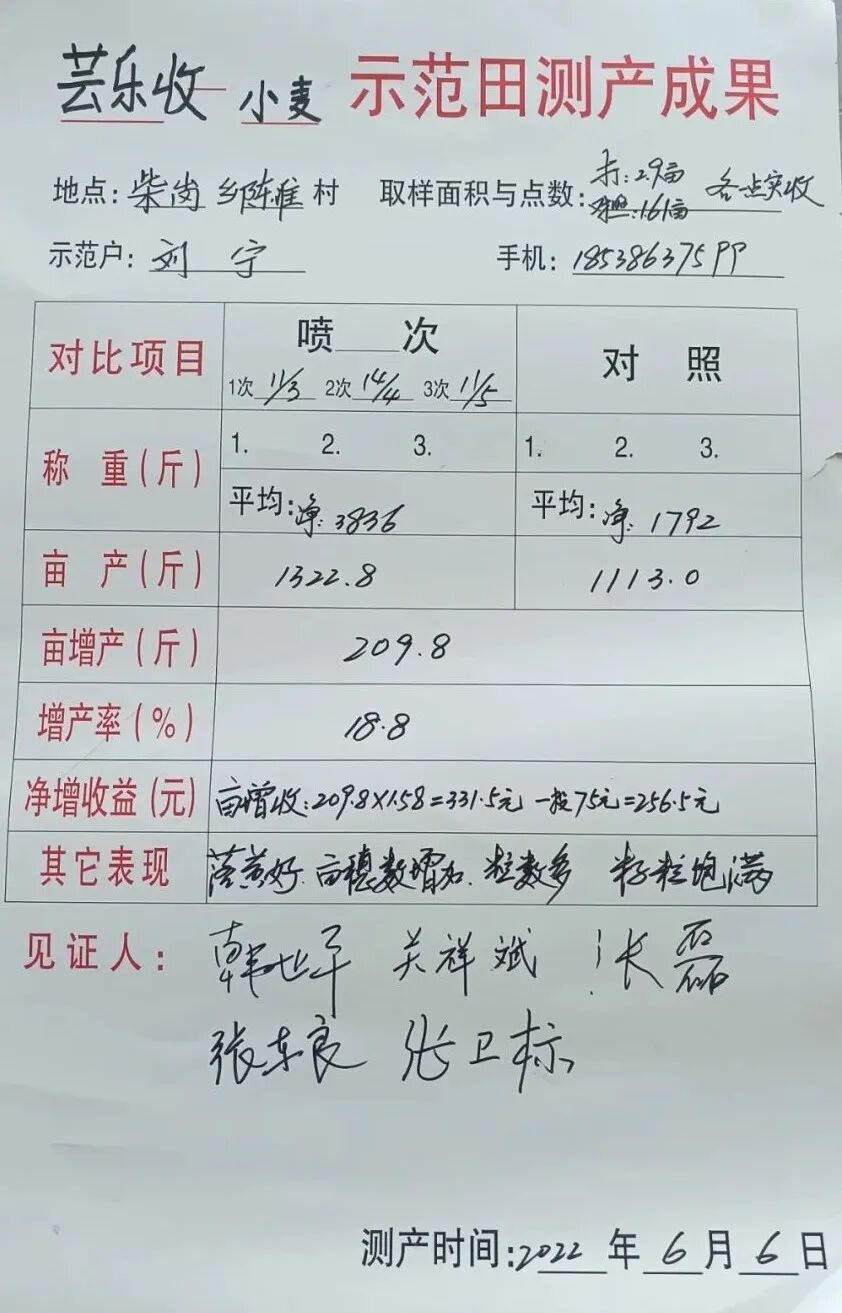 芸乐收 小麦 示范田测产成果
地点: 柴岗 乡陈淮 村 取样面积与点数: 打:2.9亩 对照:1.61亩 各点实收
示范户: 刘宁 手机: 185386375
对比项目 喷 次 对照
1次 11/3 2次 14/4 3次 11/5
称重(斤) 1. 2. 3. 1. 2. 3.
平均: 净: 3836 平均: 净: 1792
亩产(斤) 1322.8 1113.0
亩增产(斤) 209.8
增产率(%) 18.8
净增收益(元) 亩增收:209.8×1.58=331.5元 一投75元=256.5元
其它表现 落黄好 亩穗数增加 粒数多 籽粒饱满
见证人: 关祥斌 张磊
张东良 张卫标
测产时间:2022年6月6日